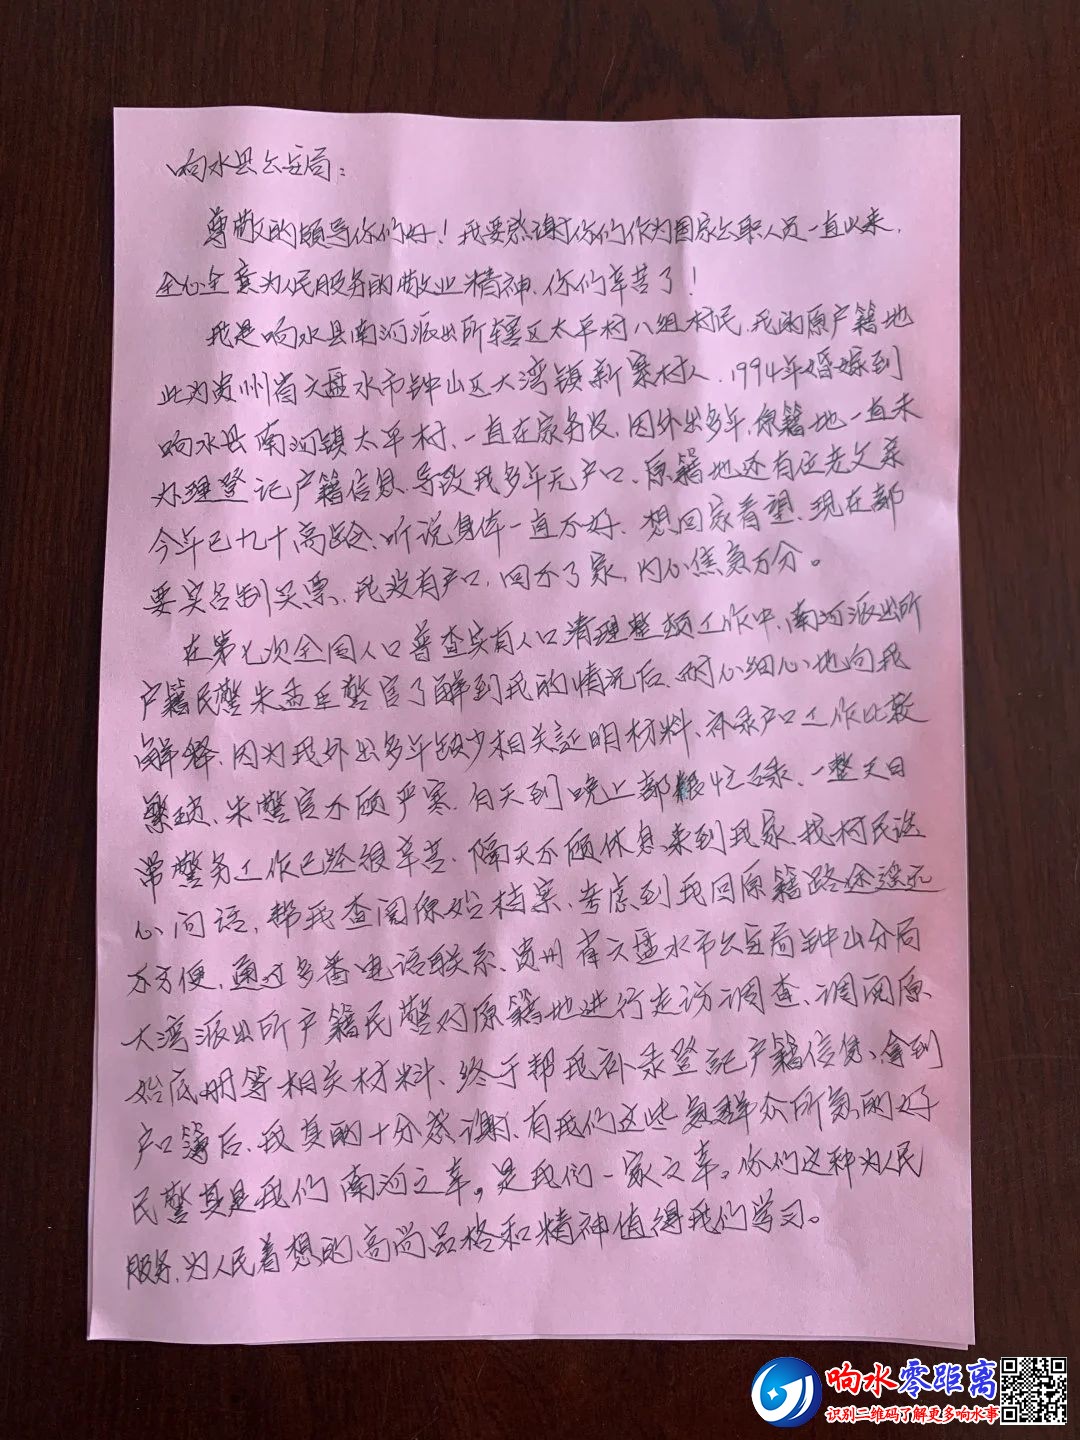 响水县公安局：
尊敬的领导你们好！我要感谢你们作为国家公职人员一直以来，
全心全意为人民服务的敬业精神、你们辛苦了！
我是响水县南河派出所辖区太平村八组村民、我的原户籍地
此为贵州省六盘水市钟山区大湾镇新寨村人、1994年婚嫁到
响水县南河镇太平村、一直在家务农、因外出多年、原籍地一直未
办理登记户籍信息、导致我多年无户口、原籍地还有位老父亲
今年已九十高龄、听说身体一直不好、想回家看望、现在都
要实名制买票、我没有户口，回不了家，内心焦急万分。
在第七次全国人口普查实有人口清理整顿工作中、南河派出所
户籍民警朱孟臣警官了解到我的情况后、耐心细心地向我
解释、因为我外出多年缺少相关证明材料、补录户口工作比较
繁琐、朱警官不顾严寒、白天到晚上都很忙碌、一整天日
常警务工作已经很辛苦、隔天不顾休息来到我家、找村民谈
心问话，帮我查阅原始档案、考虑到我回原籍路途遥远
不方便，通过多番电话联系、贵州省六盘水市公安局钟山分局
大湾派出所户籍民警对原籍地进行走访调查、调阅原
始底册等相关材料、终于帮我补录登记户籍信息、拿到
户口簿后、我真的十分感谢、有我们这些急群众所急的好
民警真是我们南河之幸。是我们一家之幸。你们这种为人民
服务、为人民着想的高尚品格和精神值得我们学习。
响水零距离
识别二维码了解更多响水事